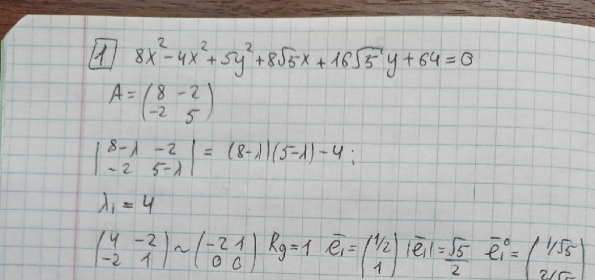 1 8x² - 4x² + 5y² + 8√5x + 16√5 y + 64 = 0
A = (8 -2
-2 5)
|8-λ -2
-2 5-λ| = (8-λ)(5-λ) - 4;
λ₁ = 4
(4 -2
-2 1) ~ (-2 1
0 0) Rg = 1 ē₁ = (1/2
1) |ē₁| = √5/2 ē₁⁰ = (1/√5
2/√5